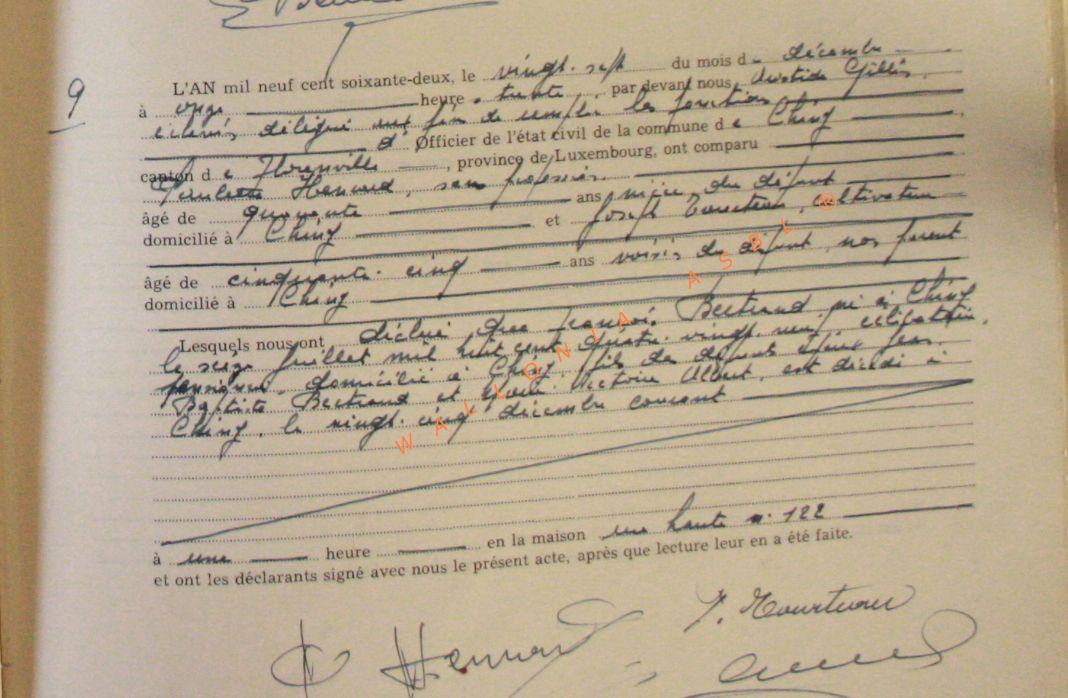 9
L'AN mil neuf cent soixante-deux, le vingt-sept du mois d décembre
à onze heure trente par devant nous, Aristide Gilles
échevin délégué aux fin de remplir les fonctions
d' Officier de l'état civil de la commune de Chiny
canton de Florenville, province de Luxembourg, ont comparu
Paulette Henrard, sans profession
âgé de quarante ans nièce du défunt
domicilié à Chiny et Joseph Tourteau, cultivateur
âgé de cinquante-cinq ans voisin du défunt, non parent
domicilié à Chiny
Lesquels nous ont déclaré que François Bertrand né à Chiny
le seize juillet mil huit cent quatre-vingt neuf, célibataire,
pensionné, domicilié à Chiny, fils de défunts Jean
Baptiste Bertrand et Victoire Albert, est décédé à
Chiny, le vingt-cinq décembre courant
à une heure en la maison rue haute n° 122
et ont les déclarants signé avec nous le présent acte, après que lecture leur en a été faite.
WALLONIA ASBL